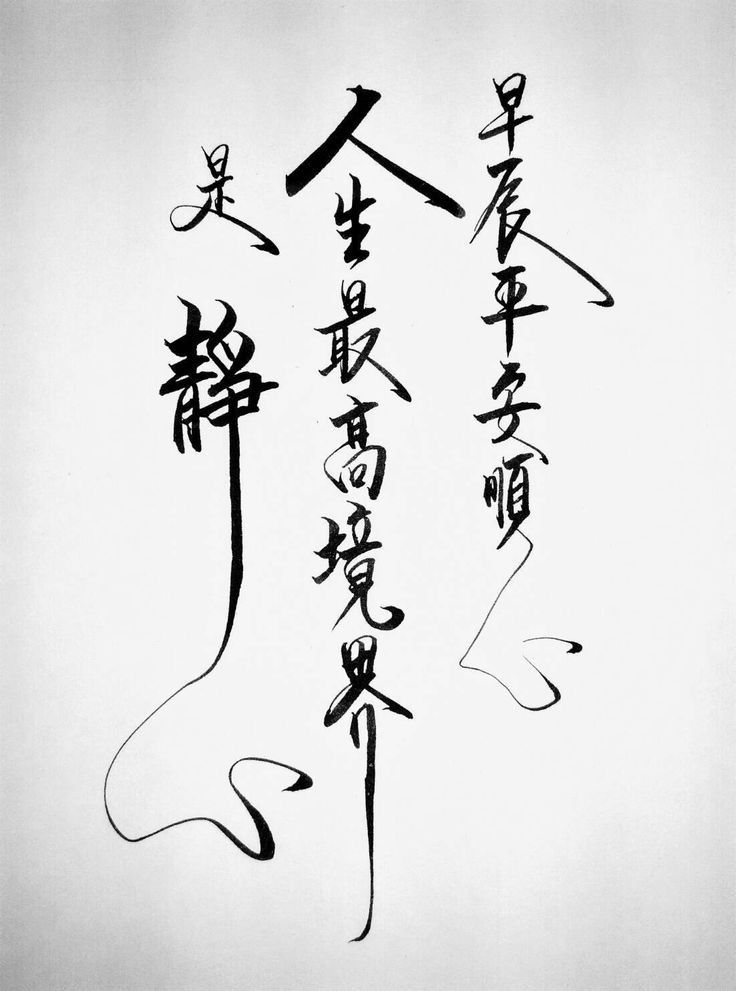 早辰平安順心
人生最高境界
是靜心